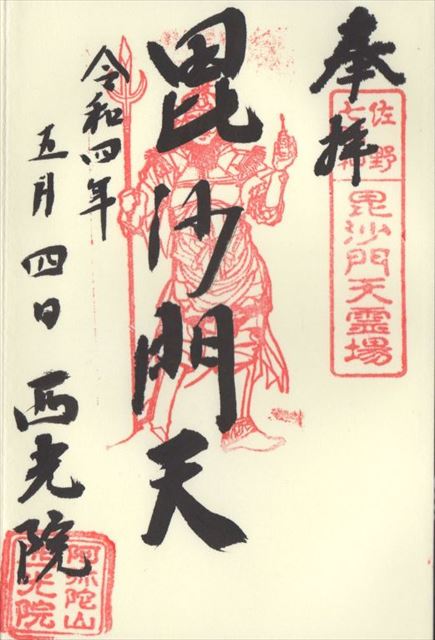 奉拝
佐野
七福神
毘沙門天霊場
毘沙門天
令和四年
五月四日
西光院
阿弥陀山
西光院